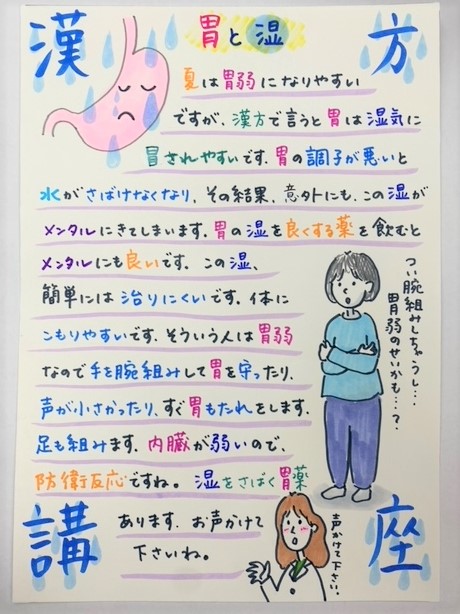 漢方
胃と湿
夏は胃弱になりやすい
ですが、漢方で言うと胃は湿気に
冒されやすいです。胃の調子が悪いと
水がさばけなくなり、その結果、意外にも、この湿が
メンタルにきてしまいます。胃の湿を良くする薬を飲むと
メンタルにも良いです。この湿、
簡単には治りにくいです。体に
こもりやすいです。そういう人は胃弱
なので手を腕組みして胃を守ったり、
声が小さかったり、すぐ胃もたれをします。
足も組みます。内臓が弱いので、
防衛反応ですね。湿をさばく胃薬
あります。お声かけて
下さいね。
つい腕組みしちゃうし…
胃弱のせいかも…？
声かけて下さい。
講座